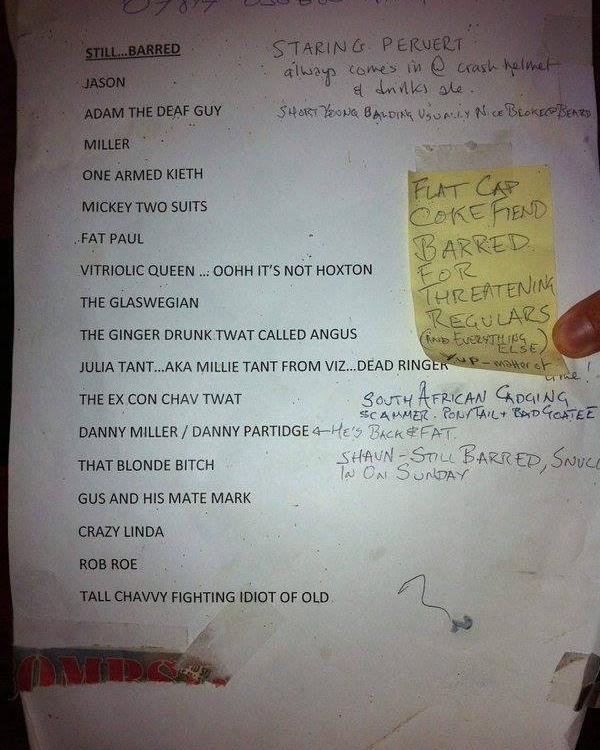 STILL...BARRED
STARING PERVERT
always comes in @ crash helmet
& drinks ale.
JASON
ADAM THE DEAF GUY
SHORT YOUNG BALDING USUALLY NICE BLOKE @ BEARD
MILLER
ONE ARMED KIETH
MICKEY TWO SUITS
FAT PAUL
VITRIOLIC QUEEN ... OOHH IT'S NOT HOXTON
THE GLASWEGIAN
THE GINGER DRUNK TWAT CALLED ANGUS
JULIA TANT...AKA MILLIE TANT FROM VIZ...DEAD RINGER
THE EX CON CHAV TWAT
DANNY MILLER / DANNY PARTIDGE
THAT BLONDE BITCH
GUS AND HIS MATE MARK
CRAZY LINDA
ROB ROE
TALL CHAVVY FIGHTING IDIOT OF OLD
FLAT CAP
COKE FIEND
BARRED
FOR
THREATENING
REGULARS
(AND EVERYTHING
ELSE)
Yup - matter of
time!
SOUTH AFRICAN CADGING
SCAMMER. PONYTAIL + BAD GOATEE
HE'S BACK & FAT.
SHAUN - STILL BARRED,
IN ON SUNDAY